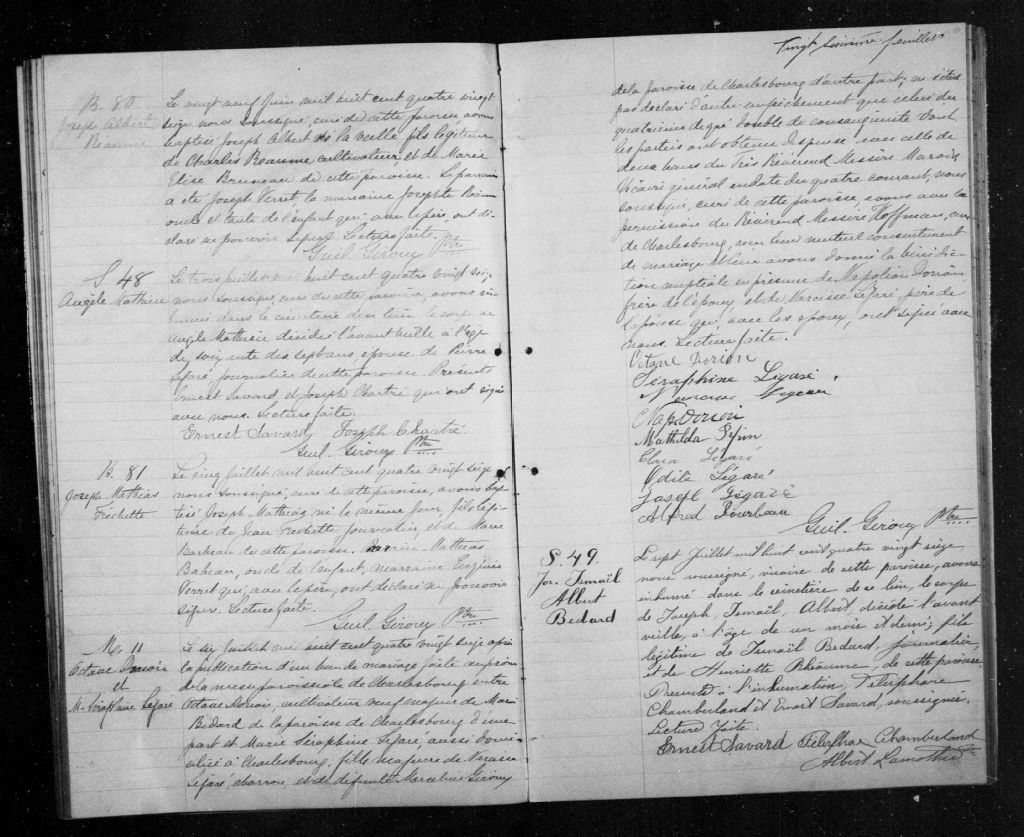 B. 80
Joseph Albert
Reaume
Le vingt neuf Juin mil huit cent quatre vingt
seize nous soussigné, curé de cette paroisse avons
baptisé Joseph Albert né la veille fils légitime
de Charles Reaume, cultivateur, et de Marie
Elise Bruneau de cette paroisse. Le parrain
a été Joseph Verret, la marraine Josephte
oncle et tante de l'enfant qui avec le père, ont dé-
claré ne pouvoir signer. Lecture faite.
Guil. Giroux Ptre
S. 48
Angèle Mathieu
Le trois juillet mil huit cent quatre vingt seize
nous soussigné, curé de cette paroisse, avons in-
humé dans le cimetière de ce lieu le corps de
Angèle Mathieu décédée l'avant veille à l'âge
de soixante dix sept ans, épouse de Pierre
Légaré, journalier de cette paroisse. Présents
Ernest Savard et Joseph Chartré qui ont signé
avec nous. Lecture faite.
Ernest Savard Joseph Chartré
Guil. Giroux Ptre
B. 81
Joseph Mathias
Fréchette
Le cinq juillet mil huit cent quatre vingt seize
nous soussigné, curé de cette paroisse, avons bap-
tisé Joseph Mathias né le même jour, fils légi-
time de Jean Frechette journalier, et de Marie
Barbeau de cette paroisse. Parrain Mathias
oncle de l'enfant, marraine
Verret qui, avec le père, ont déclaré ne pouvoir
signer. Lecture faite.
Guil. Giroux Ptre
M. 11
et
M. Séraphine Légaré
Le six juillet mil huit cent quatre vingt seize après
la publication d'un ban de mariage faite au prône
de la messe paroissiale de Charlesbourg entre
Octave Dorion, cultivateur veuf majeur de Marie
Bédard de la paroisse de Charlesbourg d'une
part et Marie Séraphine Légaré, aussi domi-
ciliée à Charlesbourg, fille majeure de Narcisse
Légaré, charron, et de défunte Marceline Giroux
Vingt sixième feuillet
de la paroisse de Charlesbourg d'autre part; ne s'étant
pas déclaré d'autre empêchement que celui du
quatrième degré double de consanguinité dont
les parties ont obtenu dispense, avec celle de
deux bans du Très Révérend Messire Marois
Vicaire général en date du quatre courant, nous
soussigné, curé de cette paroisse, avons avec la
permission du Révérend Messire Hoffman, curé
de Charlesbourg, reçu leur mutuel consentement
de mariage et leur avons donné la bénédic-
tion nuptiale en présence de Napoléon Dorion
frère de l'époux et de Narcisse Légaré, père de
l'épouse qui, avec les époux, ont signé avec
nous. Lecture faite.
Octave Dorion
Séraphine Légaré
Narcisse Légaré
Nap. Dorion
Mathilda Pépin
Légaré
Odile Légaré
Joseph Légaré
Alfred Pourbeau
Guil. Giroux Ptre
S. 49.
Jos. Ismaël
Albert
Bedard
Le sept Juillet mil huit cent quatre vingt seize
nous soussigné, vicaire de cette paroisse, avons
inhumé dans le cimetière de ce lieu, le corps
de Joseph, Ismaël, Albert, décédé l'avant
veille, à l'âge de un mois et demi, fils
légitime de Ismaël Bedard, journalier,
et de Henriette Rhéaume, de cette paroisse.
Présents à l'inhumation, Télesphore
Chamberland et Ernest Savard, soussignés.
Lecture faite.
Ernest Savard Télesphore Chamberland
Albert Lamothe Ptre